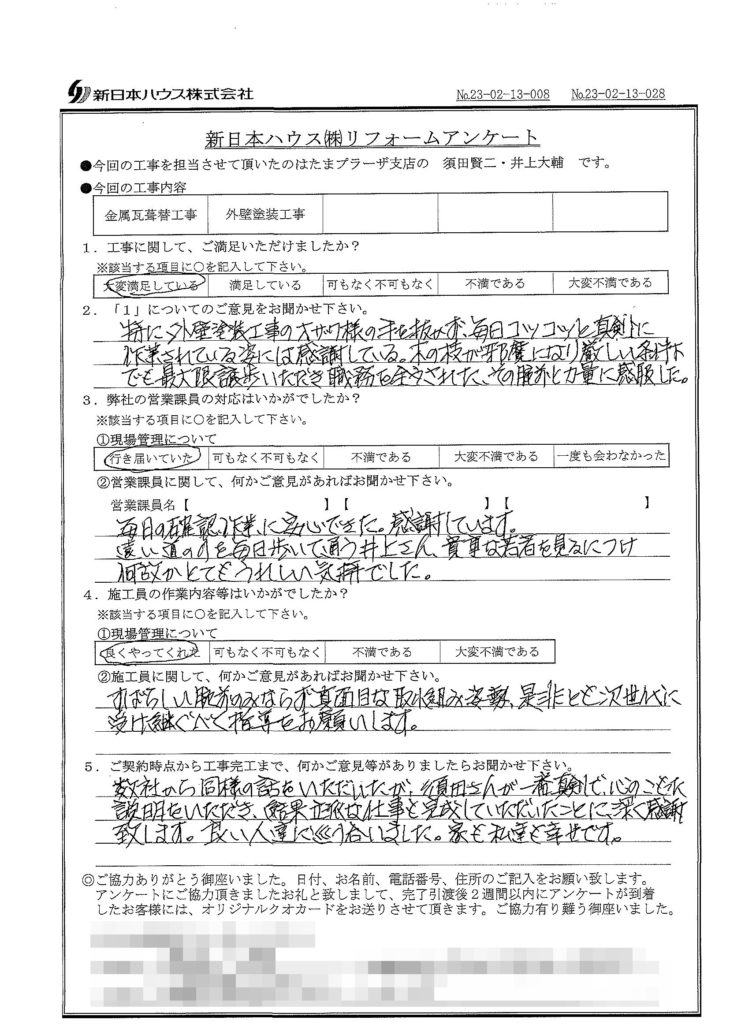 新日本ハウス株式会社 №23-02-13-008 №23-02-13-028
新日本ハウス㈱リフォームアンケート
●今回の工事を担当させて頂いたのはたまプラーザ支店の 須田賢二・井上大輔 です。
●今回の工事内容
金属瓦葺替工事 外壁塗装工事
1．工事に関して、ご満足いただけましたか？
※該当する項目に○を記入して下さい。
大変満足している 満足している 可もなく不可もなく 不満である 大変不満である
2．「1」についてのご意見をお聞かせ下さい。
特に外壁塗装工事の様の手を抜かず、毎日コツコツと真剣に
作業されている姿には感謝している。木の枝が邪魔になり厳しい条件下
でも最大限譲歩いただき職務を全うされた、その腕前と力量に感服した。
3．弊社の営業課員の対応はいかがでしたか？
※該当する項目に○を記入して下さい。
①現場管理について
行き届いていた 可もなく不可もなく 不満である 大変不満である 一度も会わなかった
②営業課員に関して、何かご意見があればお聞かせ下さい。
営業課員名【 】【 】【 】
毎日の確認作業に安心できた。感謝しています。
遠い道のりを毎日歩いて通う井上さん、貴重な若者を見るにつけ
何故かとてもうれしい気持でした。
4．施工員の作業内容等はいかがでしたか？
※該当する項目に○を記入して下さい。
①現場管理について
良くやってくれた 可もなく不可もなく 不満である 大変不満である
②施工員に関して、何かご意見があればお聞かせ下さい。
すばらしい腕前のみならず真面目な取り組み姿勢、是非とも次世代に
受け継ぐべく指導をお願いします。
5．ご契約時点から工事完工まで、何かご意見等がありましたらお聞かせ下さい。
数社から同様の話をいただいたが、須田さんが一番真剣で、心のこもった
説明をいただき、結果立派な仕事を完成していただいたことに、深く感謝
致します。良い人達に巡り合いました。家も私達も幸せです。
◎ご協力ありがとう御座いました。日付、お名前、電話番号、住所のご記入をお願い致します。
アンケートにご協力頂きましたお礼と致しまして、完了引渡後2週間以内にアンケートが到着
したお客様には、オリジナルクオカードをお送りさせて頂きます。ご協力有り難う御座いました。